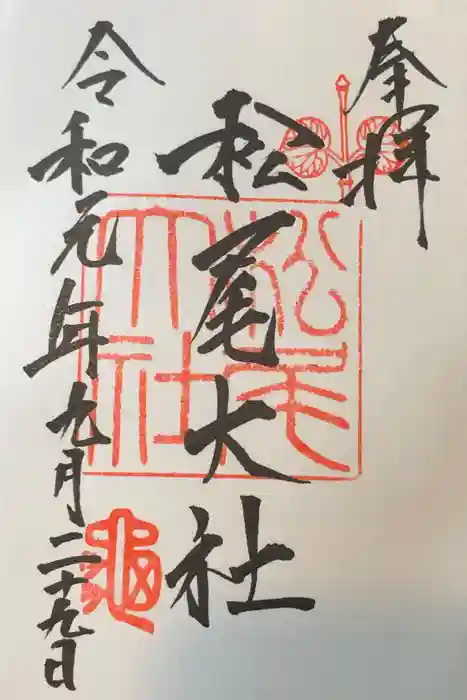 奉拝
松尾大社
令和元年九月二十九日
松尾大社
亀